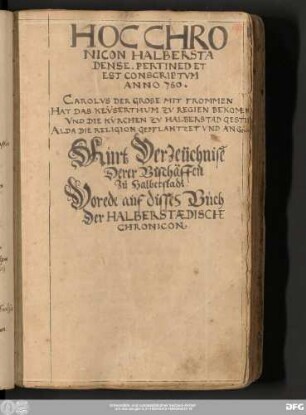 HOC CHRO
NICON HALBERSTA
DENSE. PERTINED ET
EST CONSCRIPTVM
ANNO 780.
CAROLVS DER GROSE MIT FROMMEN
HAT DAS KEŸSERTHUM ZU REGIEN BEKOMEN
VND DIE KÜRCHEN ZU HALBERSTAD GESTI
ALDA DIE RELIGION GEPFLANTZET UND ANG
Kurtz Verzeüchniß
Derer Bischäffen
Zu Halberstadt
Vorede auf düßes Buch
Der HALBERSTÆDISCHE
CHRONICON.